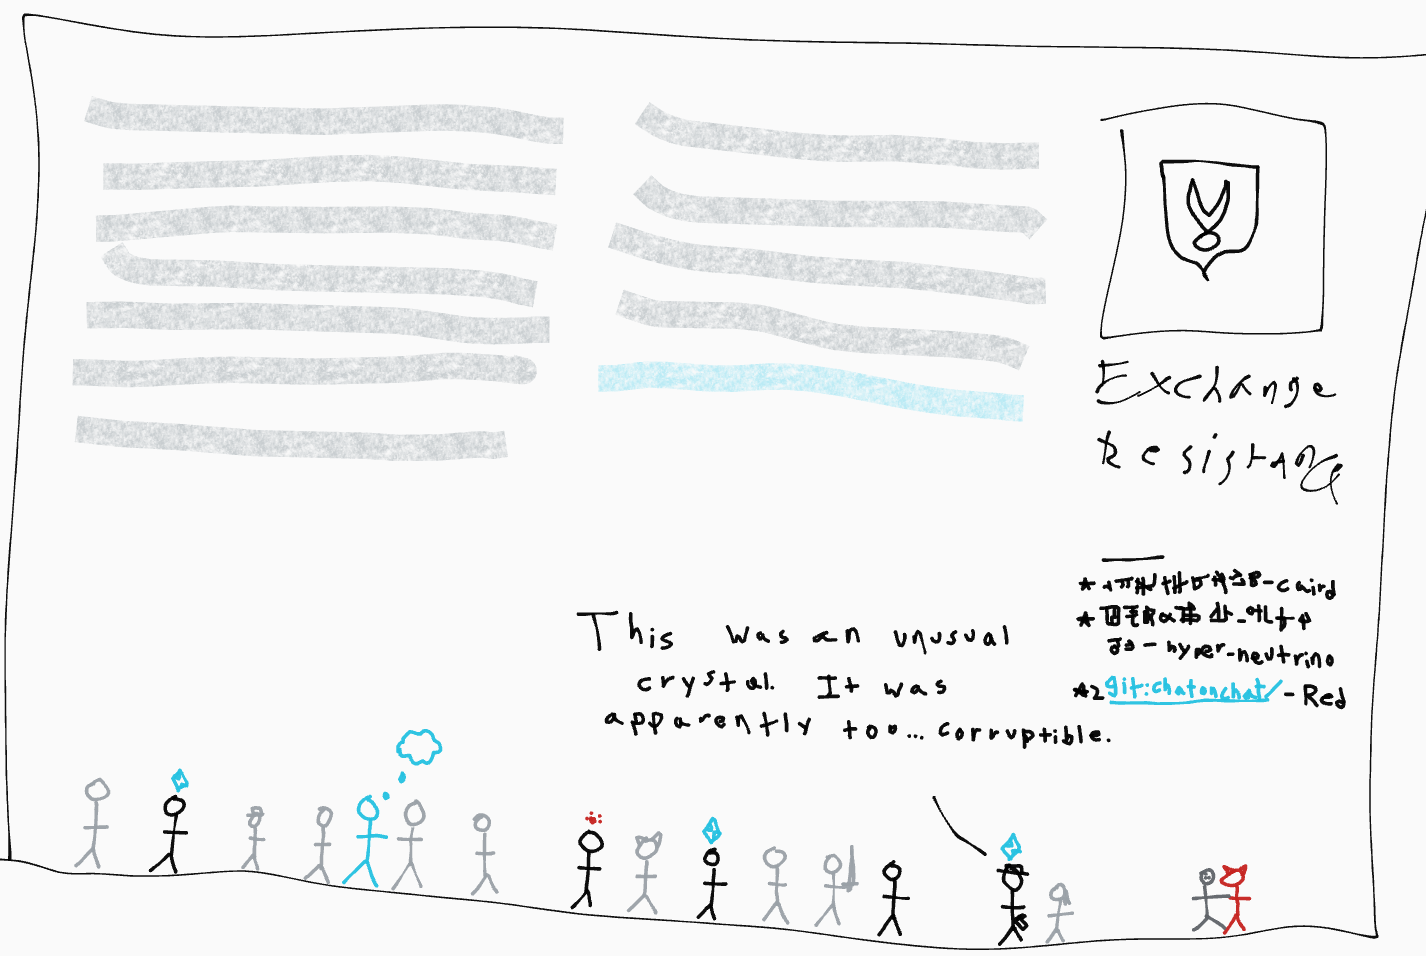 Exchange
Resistance
-caird
-hyper-neutrino
*2 git:chatonchat/ - Red
This was an unusual
crystal. It was
apparently too... corruptible.